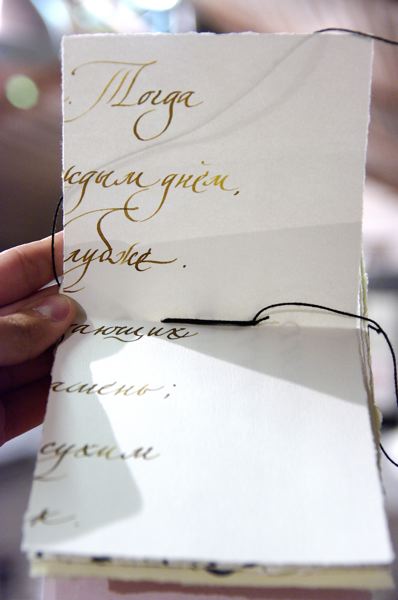 . Тогда
ждым днём,
лубже .
ающих
амень;
сухим
к.